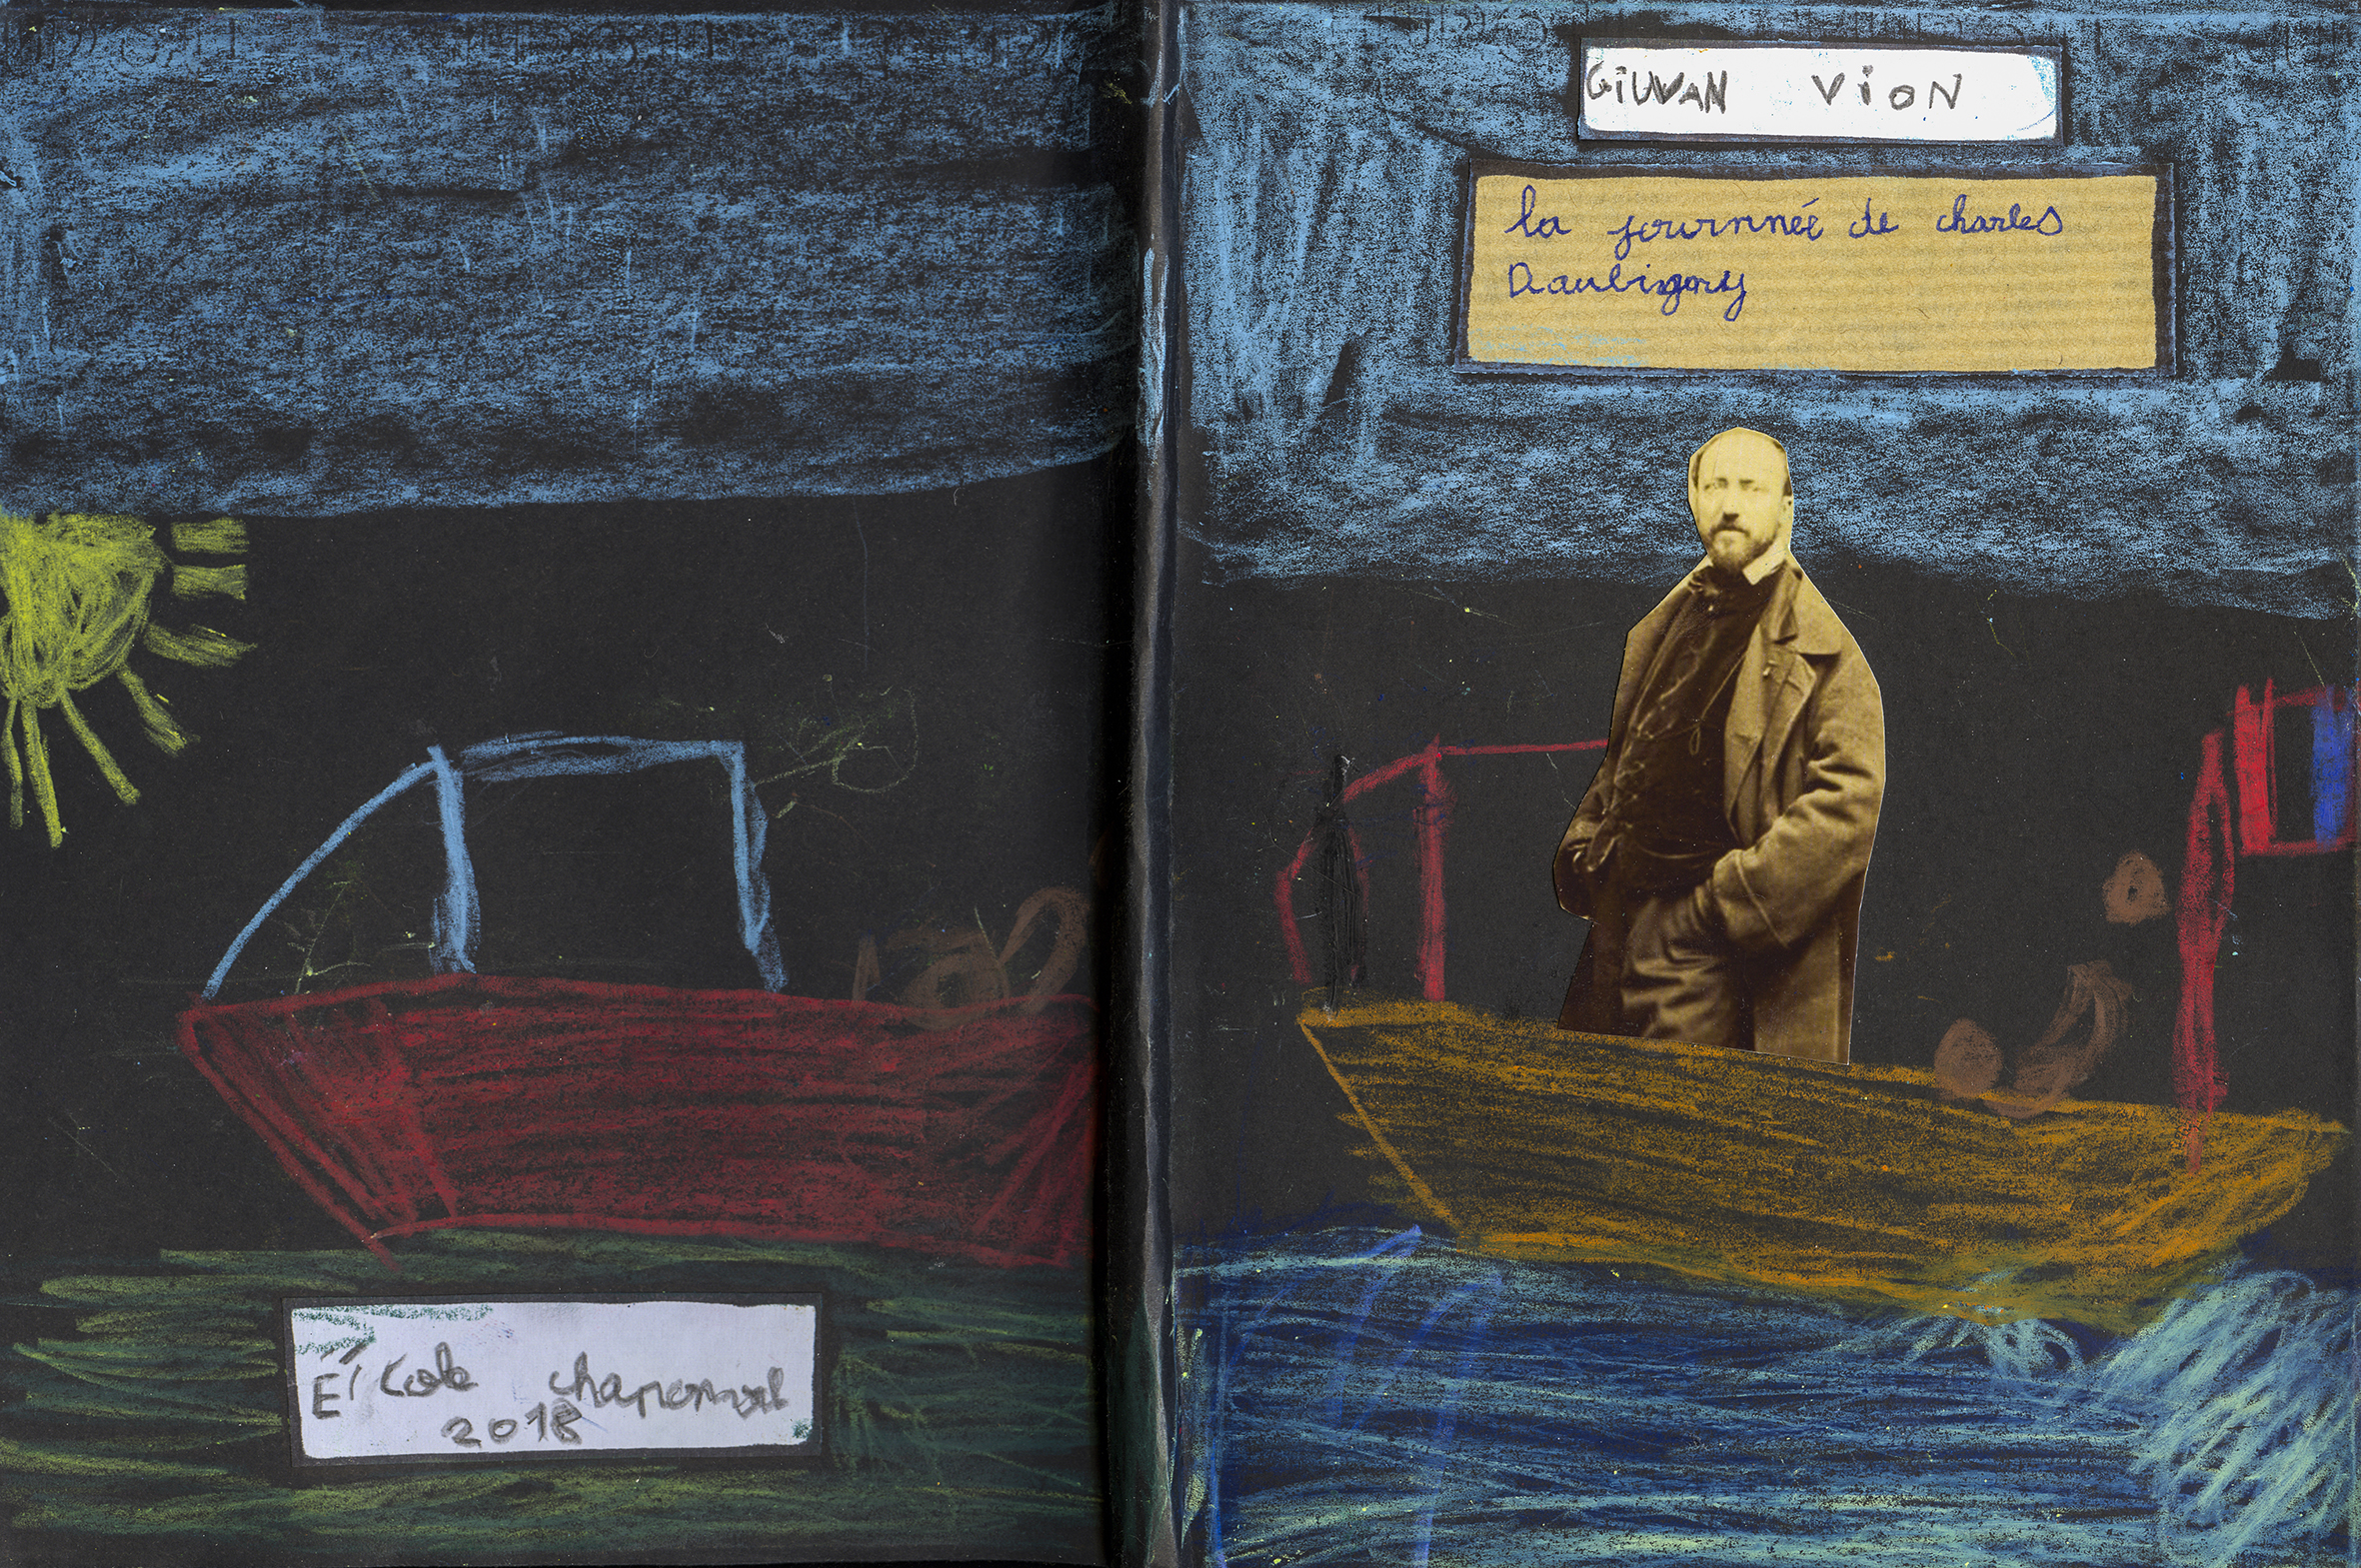 GiUVAN VioN
la journnée de charles
Daubigny
E'cole chaponval
2018